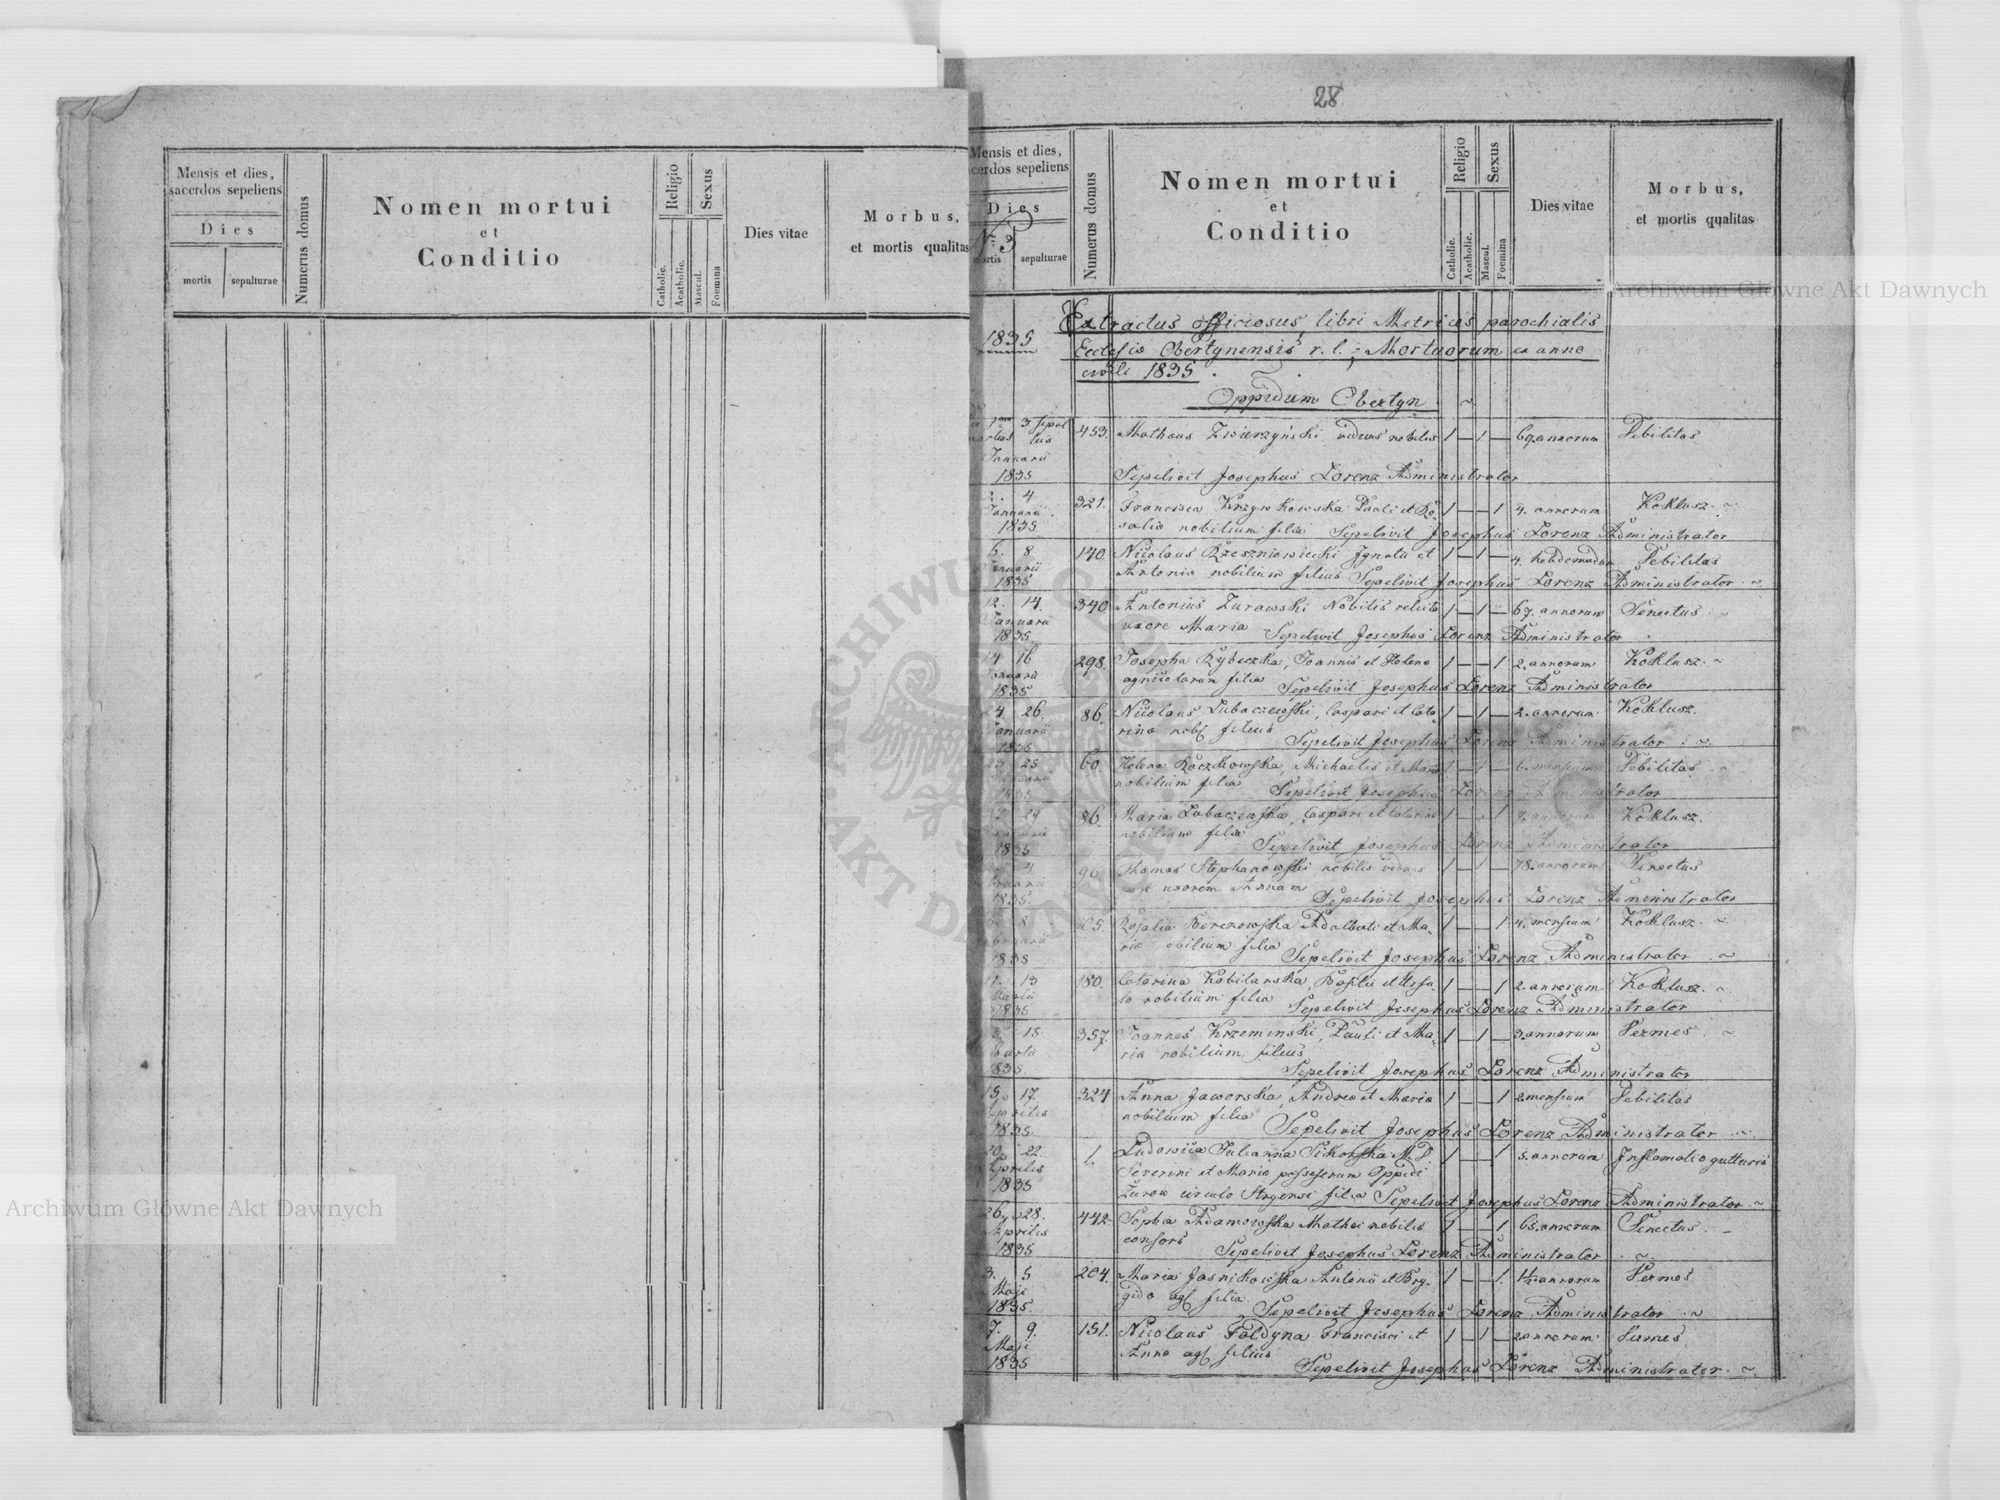 Mensis et dies,
sacerdos sepeliens
Dies
mortis
sepulturae
Numerus domus
Nomen mortui
et
Conditio
Religio
Catholic.
Acatholic.
Sexus
Mascul.
Foemina
Dies vitae
Morbus,
et mortis qualitas
28
Mensis et dies,
sacerdos sepeliens
Dies
mortis
sepulturae
Numerus domus
Nomen mortui
et
Conditio
Religio
Catholic.
Acatholic.
Sexus
Mascul.
Foemina
Dies vitae
Morbus,
et mortis qualitas
1835
Extractus officiosus libri Metrices parochialis
Ecclesie Obertynensis r. l. Mortuorum ex anno
civili 1835
Oppidum Obertyn
Januarii
1835
453. Matheus Zwierzyński viduus nobilis 1 — 1 — 69 annorum Debilitas
Sepelivit Josephus Lorenz Administrator
4
Januarii
1835
321. Francisca Krzyw kowska Pauli et Ro 1 — — 1 4. annorum Koklusz
salia nobilium filia Sepelivit Josephus Lorenz Administrator
6. 8
Januarii
1835
170. Nicolaus Rzeszniowiecki Ignatii et 1 — 1 — 4. hebdomadum Debilitas
Antonia nobilium filius Sepelivit Josephus Lorenz Administrator
12. 14.
Januarii
1835
340 Antonius Zurawski Nobilis relicta 1 — 1 — 67. annorum Senectus
uxore Maria Sepelivit Josephus Lorenz Administrator
14 16
Januarii
1835
298. Josepha Rybeczka, Joannis et Helena 1 — — 1 2. annorum Koklusz
agricolarum filia Sepelivit Josephus Lorenz Administrator
24 26.
Januarii
1835
86. Nicolaus Lubaczewski, Caspari et Cata 1 — 1 — 2. annorum Koklusz.
rina nobl filius Sepelivit Josephus Lorenz Administrator
23 25
1835
60. Helena Raczkowska, Michaelis et Maria 6. mensium Debilitas
nobilium filia Sepelivit Josephus Lorenz Administrator
29
1835
86. Maria Lubaczewska, Caspari et Catarina 1 — 1 annorum Koklusz.
nobilium filia Sepelivit Josephus Lorenz Administrator
1835
96. Thomas Stephanowski nobilis viduus 1 — 1 — 78. annorum Senectus
post uxorem Annam Sepelivit Josephus Lorenz Administrator
8
Februarii
1835
165. Rosalia Berezowska Adalberti et Ma 1 — — 1 4. mensium Koklusz
ria nobilium filia Sepelivit Josephus Lorenz Administrator
11. 13
Martii
1835
180. Catarina Kobilanska, Basilii et Ursu 1 — — 1 2. annorum Koklusz
la nobilium filia Sepelivit Josephus Lorenz Administrator
15
Martii
1835
357. Joannes Krzeminski, Pauli et Ma 1 — 1 — 3 annorum Vermes
ria nobilium filius
Sepelivit Josephus Lorenz Administrator
15. 17.
Aprilis
1835
324 Anna Jaworska, Andrea et Maria 1 — — 1 2 mensium Debilitas
nobilium filia Sepelivit Josephus Lorenz Administrator
20. 22.
Aprilis
1835
1. Ludovica Julianna Sikorska M. D 1 — — 1 5. annorum Inflamatio gutturis
Severini et Maria possesserum Oppidi
Żurow circulo Stryensi filia Sepelivit Josephus Lorenz Administrator
26. 28.
Aprilis
1835
442. Sophia Adamowska Mathei nobilis 1 — — 1 65. annorum Senectus
consors Sepelivit Josephus Lorenz Administrator
3. 5
Maji
1835
204. Maria Jasnikowska Antonii et Bry 1 — — 1. 1½ annorum Vermes
gida agl filia Sepelivit Josephus Lorenz Administrator
7. 9.
Maji
1835
151. Nicolaus Foldyna Francisci et 1 — 1 — 2 annorum Vermes
Anna agl filius Sepelivit Josephus Lorenz Administrator
Archiwum Główne Akt Dawnych
Archiwum Główne Akt Dawnych